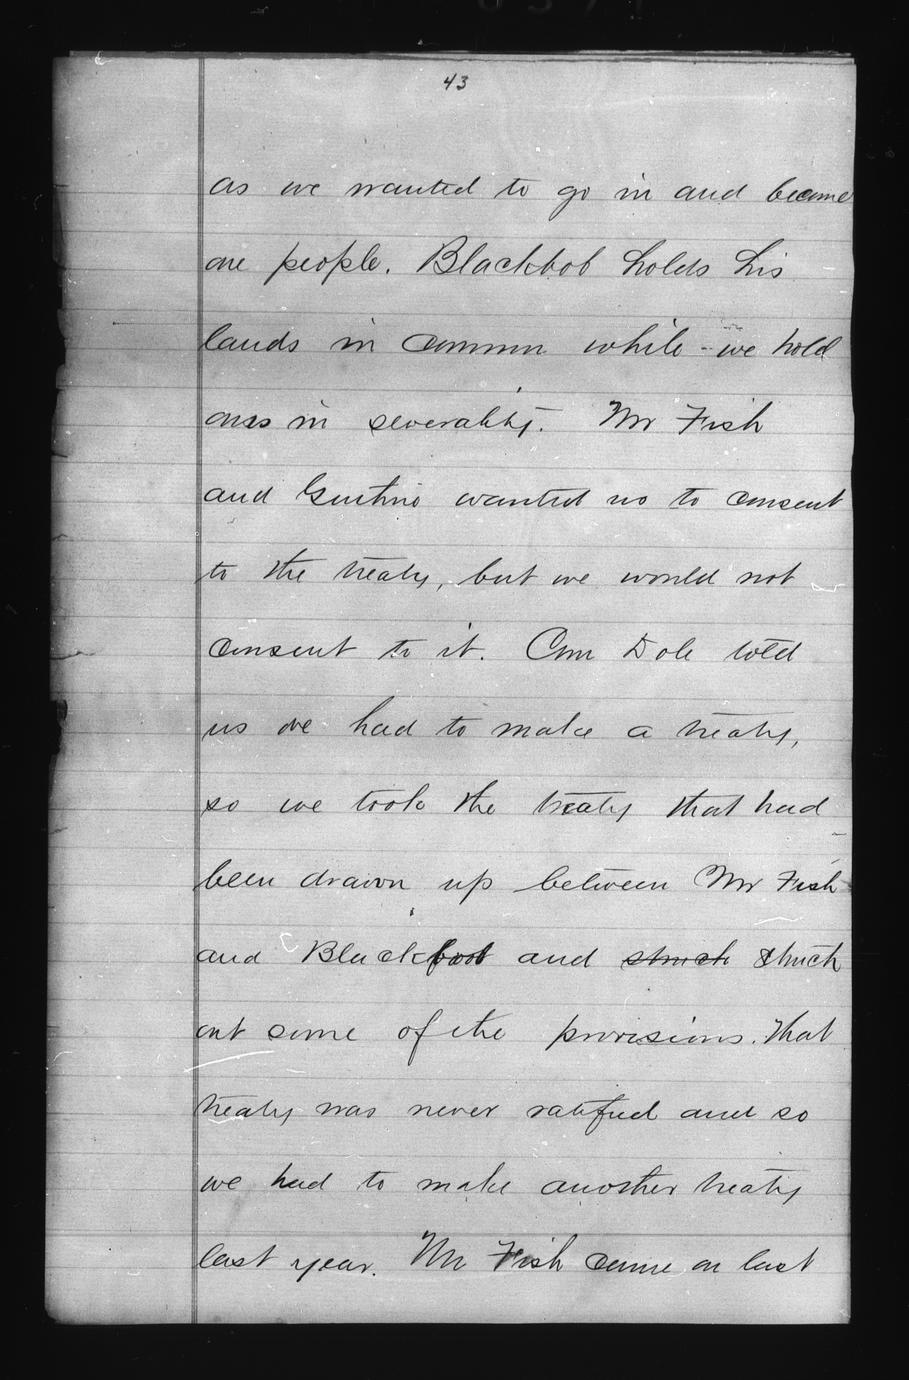 43
as we wanted to go in and become
one people. Blackbob holds his
lands in common while we hold
ours in severality. Mr Fish
and wanted us to consent
to the treaty, but we would not
consent to it. Com Dole told
us we had to make a treaty,
so we took the treaty that had
been drawn up between Mr Fish
and Blackfoot and struck struck
out some of the provisions. That
treaty was never ratified and so
we had to make another treaty
last year. Mr Fish came on last